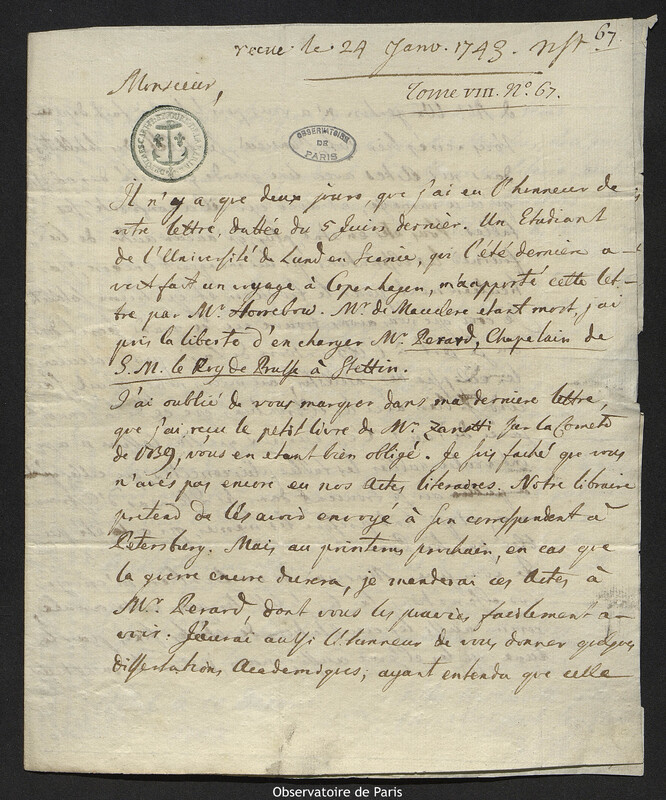 recue le 24 Janv. 1743. nst
67.
Tome VIII. No. 67.
Monsieur,
OBSERVATOIRE
DE
PARIS
Il n'y a que deux jours, que j'ai eu l'honneur de
vtre lettre, dattée du 5 Juin dernier. Un Etudiant
de l'Université de Lund en Scanie, qui l'été derniere a-
voit fait un voyage à Copenhagen, m'a apporté cette let-
tre par Mr. Horrebow. Mr. de Mauclerc etant mort, j'ai
pris la liberté d'en charger Mr. Perard, Chapelain de
S. M. le Roy de Prusse à Stettin.
J'ai oublié de vous marquer dans ma derniere lettre,
que j'ai reçu le petit livre de Mr. Zanotti sur la Comete
de 1739, vous en etant bien obligé. Je suis faché que vous
n'avés pas encore eu nos Actes literaires. Notre libraire
pretend de les avoir envoyé à son correspondent à
Petersburg. Mais au printems prochain, en cas que
la guerre encore durera, je manderai ces Actes à
Mr. Perard, dont vous les pouvies facilement a-
voir. J'aurai aussi l'honneur de vous donner quelques
dissertations Academiques, ayant entendu que celle
Observatoire de Paris